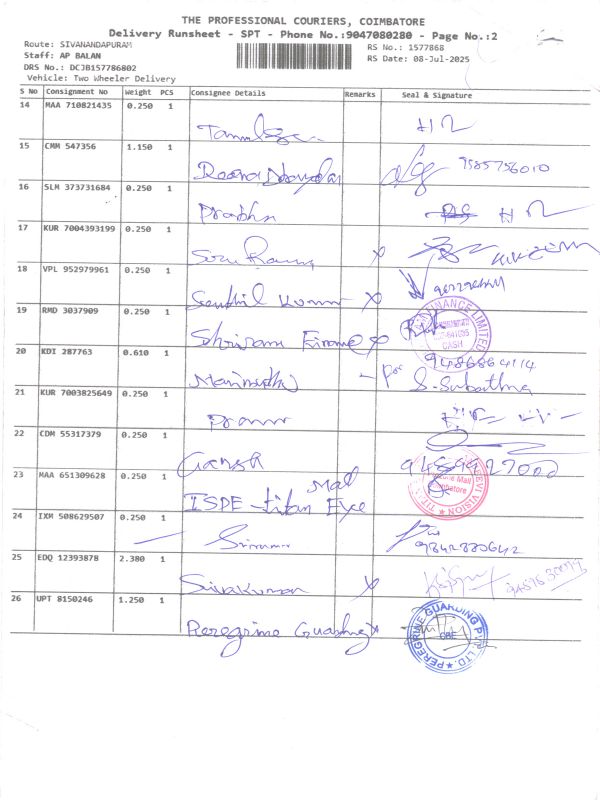 THE PROFESSIONAL COURIERS, COIMBATORE
Delivery Runsheet - SPT - Phone No.:9047080280 - Page No.:2
Route: SIVANANDAPURAM
RS No.: 1577868
Staff: AP BALAN
RS Date: 08-Jul-2025
DRS No.: DCJB157786802
Vehicle: Two Wheeler Delivery
S No Consignment No Weight PCS Consignee Details Remarks Seal & Signature
14 MAA 710821435 0.250 1
15 CMM 547356 1.150 1
9585756010
16 SLM 373731684 0.250 1
Prabhu
17 KUR 7004393199 0.250 1
18 VPL 952979961 0.250 1
Senthil Kumar
19 RMD 3037909 0.250 1
Shriram Finance
FINANCE LIMITED
CASH
20 KDI 287763 0.610 1
9486864114
Marimuthu
For S. Subathra
21 KUR 7003825649 0.250 1
22 CDM 55317379 0.250 1
Ganesh
9489927000
23 MAA 651309628 0.250 1
Mall
ISPE - titan Eye
VISION
24 IXM 508629507 0.250 1
9842880642
25 EDQ 12393878 2.380 1
Sivakumar
26 UPT 8150246 1.250 1
Peregrine Guarding
PEREGRINE GUARDING PVT. LTD.
CBE